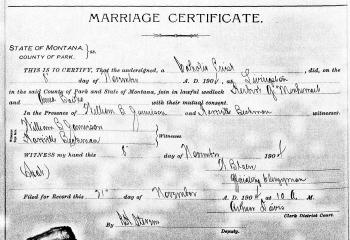 MARRIAGE CERTIFICATE.
STATE OF MONTANA, } ss.
COUNTY OF PARK.
THIS IS TO CERTIFY, That the undersigned, a Catholic Priest, did, on the
8" day of November A. D. 1904, at Livingston
in the said County of Park and State of Montana, join in lawful wedlock Herbert
and Anna with their mutual consent.
In the Presence of William E. Jamieson and Henriette witnesses.
William E. Jamieson
Henriette } Witnesses
WITNESS my hand this 8" day of November 1904
(Seal)
Clergyman
Filed for Record this 21" day of November A. D. 1904 at 10 A. M.
Arthur Davis
Clerk District Court.
By Deputy.